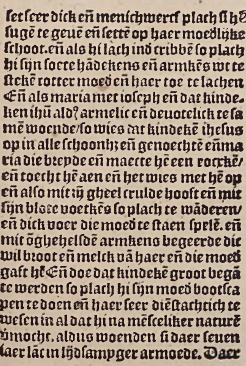 seer seer dick eñ menichwerf plach si hē
sugē te geuē eñ settē op haer moedlijke
schoot. eñ als hi lach ind cribbē so plach
hi sijn soete hādekens eñ armkēs wt te
stekē totter moed eñ haer toe te lachen
Eñ als maria met ioseph eñ dat kinde-
ken ihū ald? armelic eñ deuotelick te sa
mē woende/so wies dat kindekē ihesus
op in alle schoonhz eñ genoechtē eñ ma
ria die breyde eñ maecte hē een rocxkē/
eñ toecht hē aen eñ het wies met hē op
eñ also mit ij gheel crulde hooft eñ mit
sijn bloee voetkēs so plach te wāderen/
eñ dick voer die moed te staen spelē. eñ
mit ōghehelsdē armkens begeerde die
wil broot eñ melck vā haer eñ die moed
gaft hē Eñ doe dat kindekē groot begā
te werden so plach hi sijn moed bootsca
pen te doen eñ haer seer diēstachtich te
wesen in al dat hi na mēsceliker naturē
v̄mocht. aldus woenden si daer seuen
iaer lāt in lijdsamyger armoede. Daer